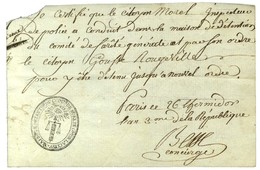 Je Certifie que le citoyen Morel Inspecteur
de police a Conduit dans la maison de détention
du comité de sureté générale et par son ordre
le citoyen Rougeville
pour y être détenu jusqu'a nouvel ordre.
Paris ce 26 thermidor
l'an 3me de la République
concierge